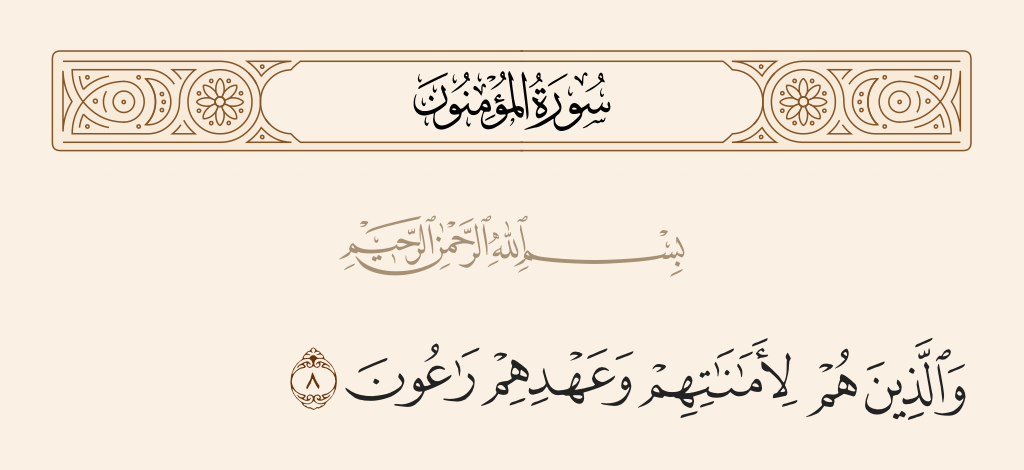 سُورَةُ المُؤْمِنُونَ
بِسْمِ ٱللَّهِ ٱلرَّحْمَٰنِ ٱلرَّحِيمِ
وَٱلَّذِينَ هُمْ لِأَمَٰنَٰتِهِمْ وَعَهْدِهِمْ رَٰعُونَ ٨